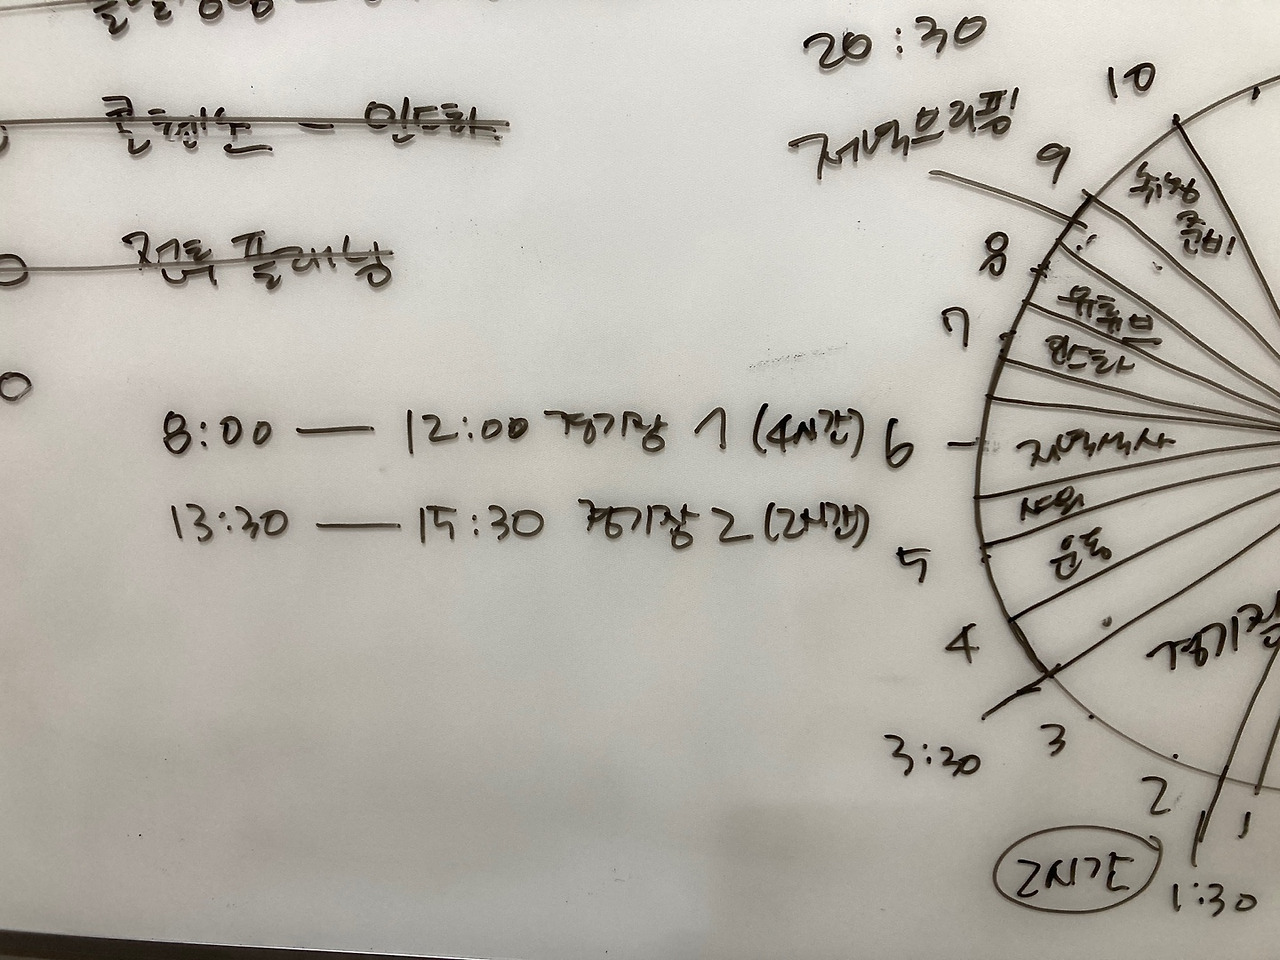 인스타
플래닝
8:00 — 12:00 경기장 1 (4시간)
13:30 — 15:30 경기장 2 (2시간)
20:30
저녁브리핑
10
9
8
7
6
5
4
3
2
1
취침
준비
유튜브
인스타
저녁식사
샤워
운동
경기장
3:30
2시간
1:30